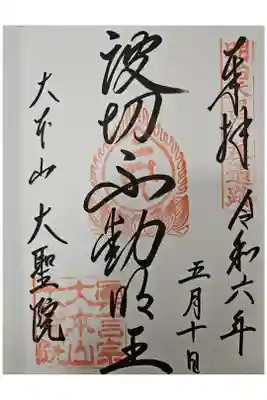 奉拝 令和六年
五月十日
波切不動明王
大本山 大聖院
真言宗
大本山